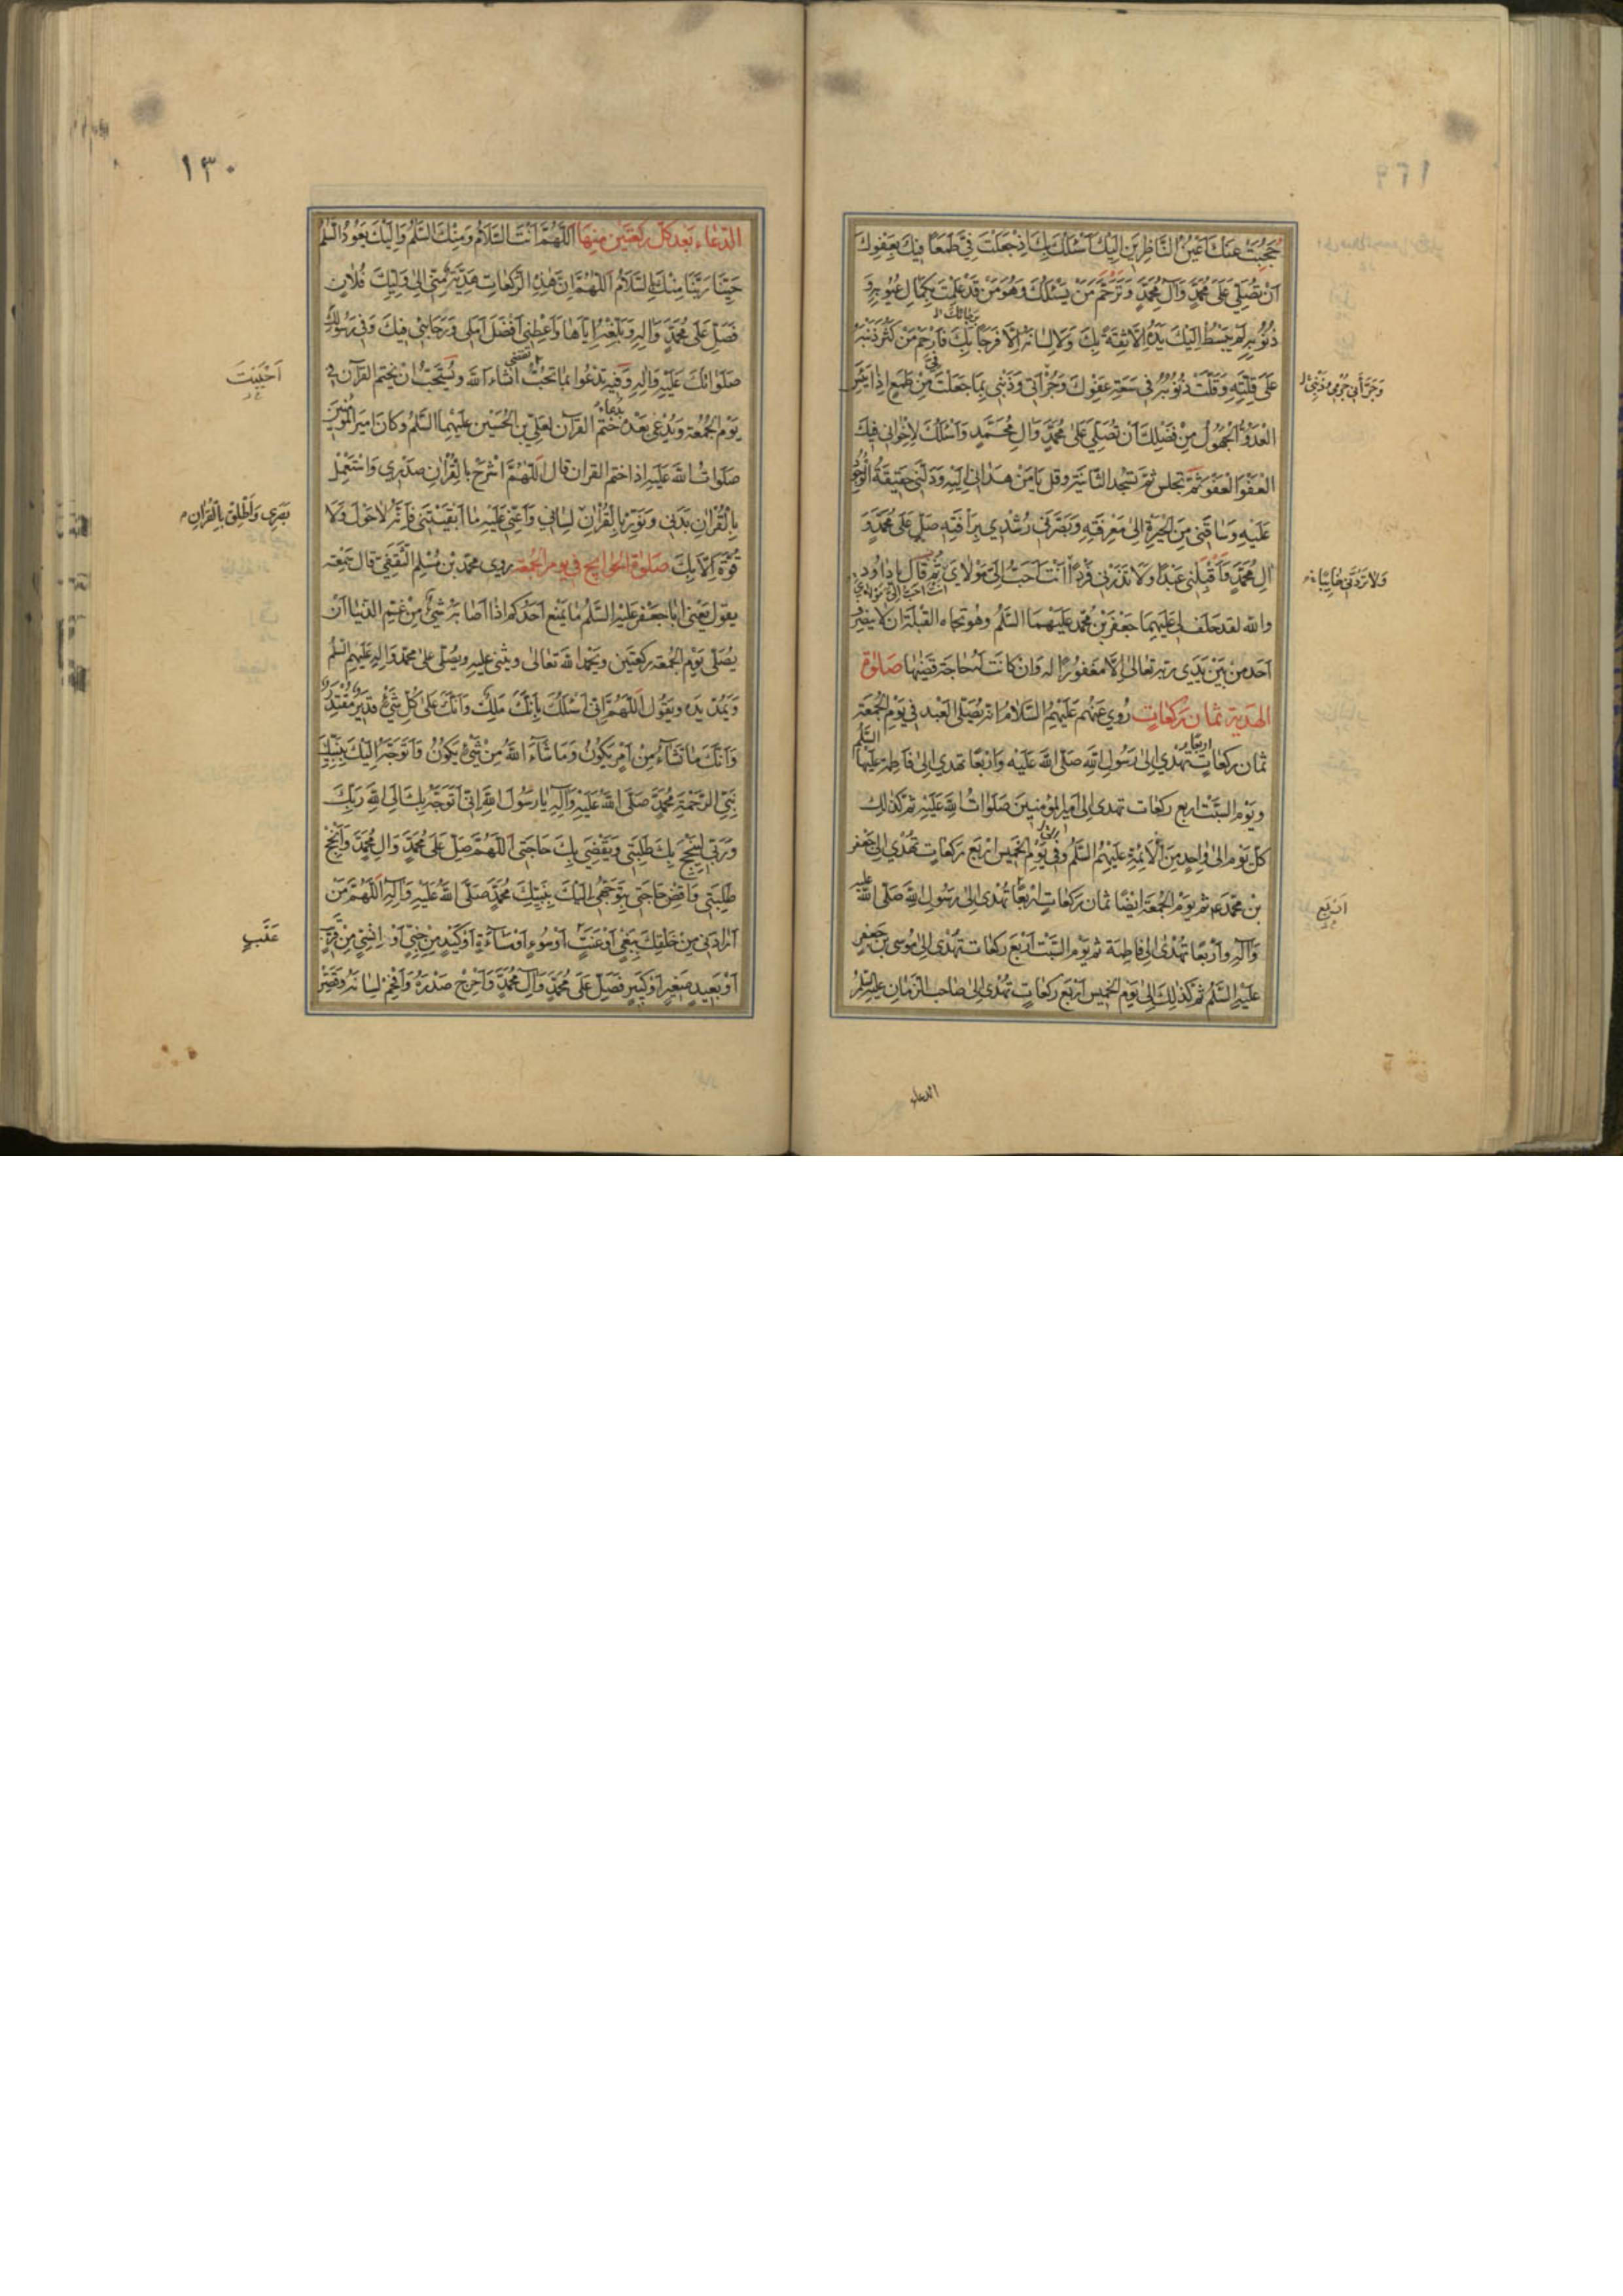 حُجِبَتْ عَنْكَ اَعْيُنُ النَّاظِرِينَ اِلَيْكَ اَسْئَلُكَ بِكَ اِذْ جَعَلْتَ فِيَّ طَمَعًا فِيكَ بِعَفْوِكَ
اَنْ تُصَلِّيَ عَلَى مُحَمَّدٍ وَآلِ مُحَمَّدٍ وَتَرَحَّمَ مَنْ يَسْئَلُكَ وَهُوَ مَنْ قَدْ عَلِمْتَ بِكَمَالِ عُيُوبِهِ وَ
ذُنُوبِهِ لَمْ يَبْسُطْ اِلَيْكَ يَدَهُ اِلَّا ثِقَةً بِكَ وَلَا لِسَانَهُ اِلَّا فَرَحًا بِكَ فَارْحَمْ مَنْ كَثُرَ ذَنْبُهُ
عَلَى قِلَّتِهِ وَقَلَّتْ ذُنُوبُهُ فِي سَعَةِ عَفْوِكَ وَجُرْاَتِي وَذَنْبِي بِمَا جَعَلْتَ مِنْ طَمَعٍ اِذَا يَئِسَ
وَجَرَّأَنِي جُرْمِي وَذَنْبِي
الْعَدُوُّ الْجَهُولُ مِنْ فَضْلِكَ اَنْ تُصَلِّيَ عَلَى مُحَمَّدٍ وَآلِ مُحَمَّدٍ وَاَسْئَلُكَ لِاِخْوَانِي فِيكَ
الْعَفْوَ الْعَفْوَ ثُمَّ تجلس ثم تسجد الثانية وقل يَا مَنْ هَدَانِي اِلَيْهِ وَدَلَّنِي حَقِيقَةُ الْوُجُودِ
عَلَيْهِ وَسَاقَنِي مِنَ الْحَيْرَةِ اِلَى مَعْرِفَتِهِ وَبَصَّرَنِي رُشْدِي بِرَأْفَتِهِ صَلِّ عَلَى مُحَمَّدٍ وَ
آلِ مُحَمَّدٍ وَاقْبَلْنِي عَبْدًا وَلَا تَذَرْنِي فَرْدًا اَنْتَ اَحَبُّ اِلَيَّ مَوْلَايَ ثُمَّ قَالَ يا داود
انت احب الي مولاي
والله لقد حلف لي عليهما جعفر بن محمد عليهما السلم وهو تجاه القبلة ان لا ينصرف
احد من بين يدي ربه تعالى الا مغفورًا له وان كانت له حاجة قضيها صلوة
الهدية ثمان ركعات روي عنهم عليهم السلام انه يصلى العبد في يوم الجمعة
ثمان ركعات تهدي الى رسول الله صلى الله عليه واربعًا تهدي الى فاطمة عليها
السلم
ويوم السبت اربع ركعات تهدى الى امير المؤمنين صلوات الله عليه ثم كذلك
كل يوم الى واحد من الائمة عليهم السلم وفي يوم الخميس اربع ركعات تهدي الى جعفر
بن محمد ع ثم يوم الجمعة ايضا ثمان ركعات اربعًا تهدى الى رسول الله صلى الله عليه
اربع
وآله واربعا تهدى الى فاطمة ثم يوم السبت اربع ركعات تهدى الى موسى بن جعفر
عليه السلم ثم كذلك الى يوم الخميس اربع ركعات تهدى الى صاحب الزمان عليه السلم
الدعاء
١٣٠
الدعاء بعد كل ركعتين منها اَللّٰهُمَّ اَنْتَ السَّلَامُ وَمِنْكَ السَّلَمُ وَاِلَيْكَ يَعُودُ السَّلَمُ
حَيِّنَا رَبَّنَا مِنْكَ بِالسَّلَامِ اَللّٰهُمَّ اِنَّ هٰذِهِ الرَّكَعَاتِ هَدِيَّةٌ مِنِّي اِلَى وَلِيِّكَ فُلَانٍ
فَصَلِّ عَلَى مُحَمَّدٍ وَآلِهِ وَبَلِّغْهُ اِيَّاهَا وَاَعْطِنِي اَفْضَلَ اَمَلِي وَرَجَائِي فِيكَ وَفِي رَسُولِكَ
صَلَوَاتُكَ عَلَيْهِ وَآلِهِ وَفِيهِ تدعوا بما تحب انشاء الله ويستحب ان يختم القرآن في
اَحْبَبْتَ
يوم الجمعة ويدعى بعده ختم القرآن لعلي بن الحسين عليهما السلم وكان امير المؤمنين
صلوات الله عليه اذا ختم القران قال اَللّٰهُمَّ اشْرَحْ بِالْقُرْاٰنِ صَدْرِي وَاسْتَعْمِلْ
بِالْقُرْاٰنِ بَدَنِي وَنَوِّرْ بِالْقُرْاٰنِ لِسَانِي وَاَعِنِّي عَلَيْهِ مَا اَبْقَيْتَنِي فَاِنَّهُ لَا حَوْلَ وَلَا
بَصَرِي وَاَطْلِقْ بِالْقُرْانِ
قُوَّةَ اِلَّا بِكَ صلوة الحوايج في يوم الجمعة روى محمد بن مسلم الثقفي قال سمعته
يقول يعني ابا جعفر عليه السلم ما يمنع احدكم اذا اصابه شيء من غم الدنيا ان
يصلى يوم الجمعة ركعتين ويحمد الله تعالى ويثني عليه ويصلى على محمد وآله عليهم السلم
ويمد يده ويقول اَللّٰهُمَّ اِنِّي اَسْئَلُكَ بِاَنَّكَ مَلِكٌ وَاَنَّكَ عَلَى كُلِّ شَيْءٍ قَدِيرٌ مُقْتَدِرٌ
وَاَنَّكَ مَا تَشَاءُ مِنْ اَمْرٍ يَكُونُ وَمَا شَاءَ اللّٰهُ مِنْ شَيْءٍ يَكُونُ وَاَتَوَجَّهُ اِلَيْكَ بِنَبِيِّكَ
نَبِيِّ الرَّحْمَةِ مُحَمَّدٍ صَلَّى اللّٰهُ عَلَيْهِ وَآلِهِ يَا رَسُولَ اللّٰهِ اِنِّي اَتَوَجَّهُ بِكَ اِلَى اللّٰهِ رَبِّكَ
وَرَبِّي لِيُنْجِحَ بِكَ طَلِبَتِي وَيَقْضِيَ بِكَ حَاجَتِي اَللّٰهُمَّ صَلِّ عَلَى مُحَمَّدٍ وَآلِ مُحَمَّدٍ وَاَنْجِحْ
طَلِبَتِي وَاقْضِ حَاجَتِي بِتَوَجُّهِي اِلَيْكَ بِنَبِيِّكَ مُحَمَّدٍ صَلَّى اللّٰهُ عَلَيْهِ وَآلِهِ اَللّٰهُمَّ مَنْ
اَرَادَنِي مِنْ خَلْقِكَ بِبَغْيٍ اَوْ عَنَتٍ اَوْ سُوءٍ اَوْ مَسَاءَةٍ اَوْ كَيْدٍ مِنْ جِنِّيٍّ اَوْ اِنْسِيٍّ مِنْ قَرِيبٍ
اَوْ بَعِيدٍ صَغِيرٍ اَوْ كَبِيرٍ فَصَلِّ عَلَى مُحَمَّدٍ وَآلِ مُحَمَّدٍ وَاَحْرِجْ صَدْرَهُ وَاَفْحِمْ لِسَانَهُ وَقَصِّرْ